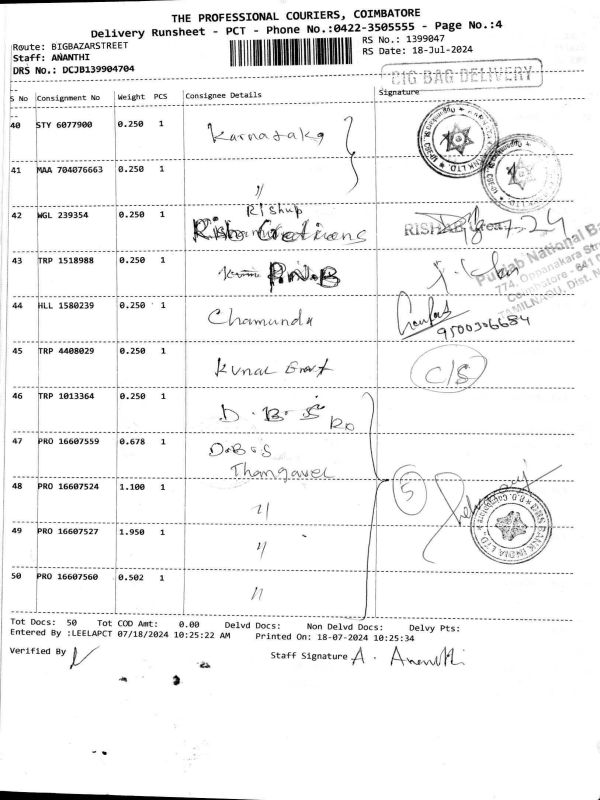 THE PROFESSIONAL COURIERS, COIMBATORE
Delivery Runsheet - PCT - Phone No.:0422-3505555 - Page No.:4
Route: BIGBAZARSTREET
RS No.: 1399047
Staff: ANANTHI
RS Date: 18-Jul-2024
DRS No.: DCJB139904704
BIG BAG DELIVERY
S No Consignment No Weight PCS Consignee Details Signature
40 STY 6077900 0.250 1 Karnataka
41 MAA 704076663 0.250 1 "
Rishup
42 WGL 239354 0.250 1 Creations RISHAB
43 TRP 1518988 0.250 1 P.N.B
Punjab National Ba
774, Oppanakara Str
Coimbatore - 641
TAMILNADU, Dist.
44 HLL 1580239 0.250 1 Chamunda
9500306684
45 TRP 4408029 0.250 1 Kunal C/S
46 TRP 1013364 0.250 1 D.B.S Ro
47 PRO 16607559 0.678 1 D.B.S
Thangavel
48 PRO 16607524 1.100 1 " 5
49 PRO 16607527 1.950 1 "
BANK INDIA LTD.
50 PRO 16607560 0.502 1 "
Tot Docs: 50 Tot COD Amt: 0.00 Delvd Docs: Non Delvd Docs: Delvy Pts:
Entered By :LEELAPCT 07/18/2024 10:25:22 AM Printed On: 18-07-2024 10:25:34
Verified By
Staff Signature A. Ananthi